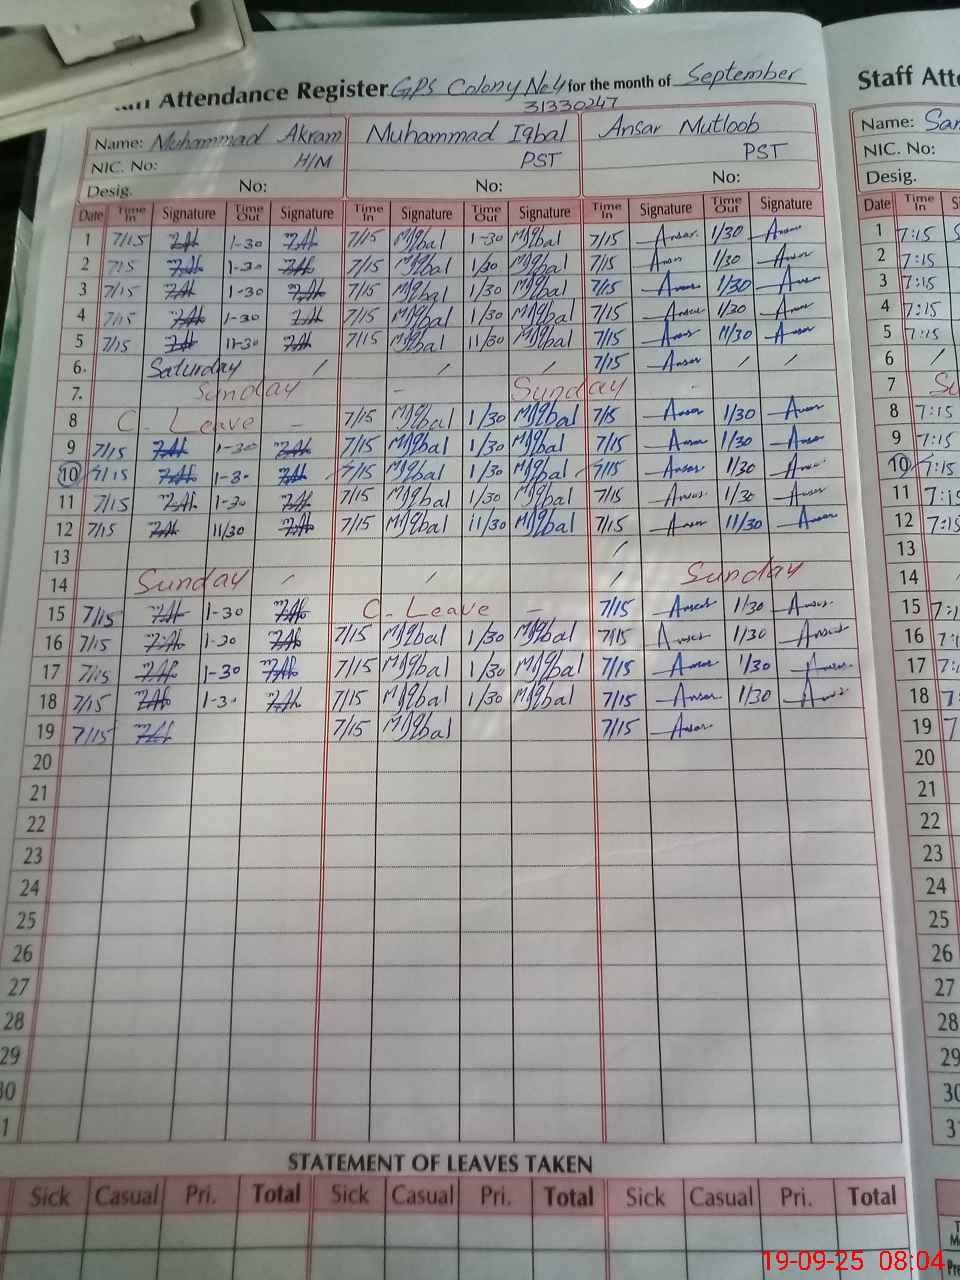 Attendance Register GPS Colony No 4 for the month of September
31330247
Name: Muhammad Akram Muhammad Iqbal Ansar Mutloob
NIC. No: H/M PST PST
Desig. No: No: No:
Date Time In Signature Time Out Signature Time In Signature Time Out Signature Time In Signature Time Out Signature
1 7/15 1-30 7/15 M Iqbal 1-30 M Iqbal 7/15 Ansar 1/30 Ansar
2 7/15 1-30 7/15 M Iqbal 1/30 M Iqbal 7/15 Ansar 1/30 Ansar
3 7/15 1-30 7/15 M Iqbal 1/30 M Iqbal 7/15 Ansar 1/30 Ansar
4 7/15 1-30 7/15 M Iqbal 1/30 M Iqbal 7/15 Ansar 1/30 Ansar
5 7/15 11-30 7/15 M Iqbal 11/30 M Iqbal 7/15 Ansar 11/30 Ansar
6. Saturday / / / 7/15 Ansar / /
7. Sunday - Sunday -
8 C - Leave - 7/15 M Iqbal 1/30 M Iqbal 7/15 Ansar 1/30 Ansar
9 7/15 1-30 7/15 M Iqbal 1/30 M Iqbal 7/15 Ansar 1/30 Ansar
10 7/15 1-30 7/15 M Iqbal 1/30 M Iqbal 7/15 Ansar 1/30 Ansar
11 7/15 1-30 7/15 M Iqbal 1/30 M Iqbal 7/15 Ansar 1/30 Ansar
12 7/15 11/30 7/15 M Iqbal 11/30 M Iqbal 7/15 Ansar 11/30 Ansar
13 /
14 Sunday / / / Sunday
15 7/15 1-30 C - Leave - 7/15 Ansar 1/30 Ansar
16 7/15 1-30 7/15 M Iqbal 1/30 M Iqbal 7/15 Ansar 1/30 Ansar
17 7/15 1-30 7/15 M Iqbal 1/30 M Iqbal 7/15 Ansar 1/30 Ansar
18 7/15 1-30 7/15 M Iqbal 1/30 M Iqbal 7/15 Ansar 1/30 Ansar
19 7/15 7/15 M Iqbal 7/15 Ansar
20
21
22
23
24
25
26
27
28
29
30
STATEMENT OF LEAVES TAKEN
Sick Casual Pri. Total Sick Casual Pri. Total Sick Casual Pri. Total
Staff
Name:
NIC. No:
Desig.
Date Time In
1 7:15
2 7:15
3 7:15
4 7:15
5 7:15
6 /
7
8 7:15
9 7:15
10 7:15
11 7:15
12 7:15
13
14
15
16
17
18
19
20
21
22
23
24
25
26
27
28
29
19-09-25 08:04